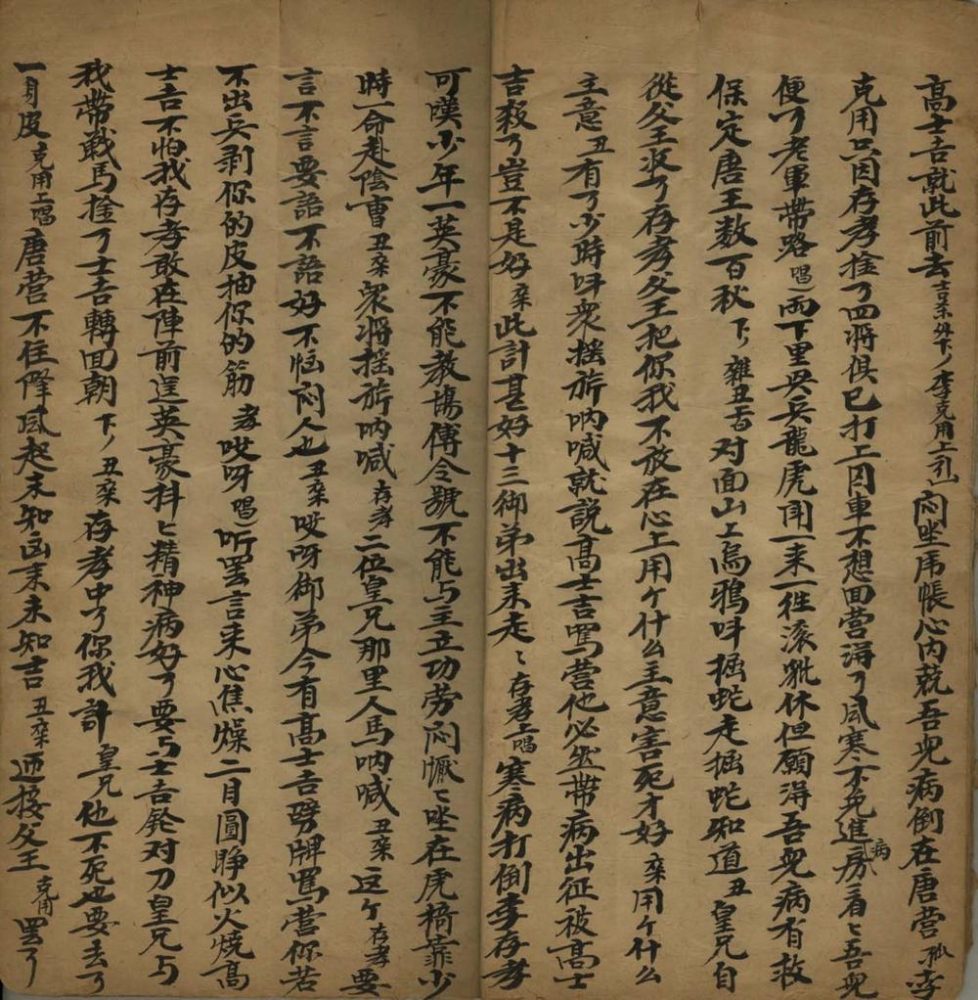 高士吉就此前去 吉末外下ノ 李克用上引 闷坐一席帐心内兢吾兒病倒在唐营 孤李
克用只因存孝捡了四將俱已打上囚車不想回营淂了風寒不免進病房看ヒ吾兒
便了老軍帶路 唱 两下里兵兵龍虎闹一来一徃滚毗休但願淂吾兒病有救
保定唐王数百秋 下ノ 雜丑舌 对面山上烏鴉呌掘蛇走掘蛇知道 丑 皇兄自
從父王收了存孝父王把你我不放在心上用个什么主意害死才好 桼 用个什么
主意 丑 有了少時呌衆摇旂呐喊就説高士吉罵营他必然帶病出征被高士
吉殺了豈不是好 桼 此計甚好十三御弟出末走ヒ 存孝上唱 寒病打倒李存孝
可嘆少年一英豪不能教塲傅令號不能与主立功劳闷懨ヒ坐在虎椅靠少
時一命赴陰曺 丑桼 衆將摇旂呐喊 存孝 二位皇兄那里人馬呐喊 丑桼 这个 存孝 要
言不言要語不語好不恼闷人也 丑桼 哎呀御弟今有高士吉劈牌罵营你若
不出兵剥你的皮抽你的筋 孝 哎呀 唱 听罢言来心焦燥二目圓睁似火燒高
士吉不怕我存孝敢在陣前逞英豪抖ヒ精神病好了要与士吉発对刀皇兄与
我帶戰馬捡了士吉轉囬朝 下ノ 丑桼 存孝中了你我計 皇兄 他不死也要去了
一身皮 克用上唱 唐营不住降風起未知凶来未知吉 丑桼 迊接父王 克用 罢了